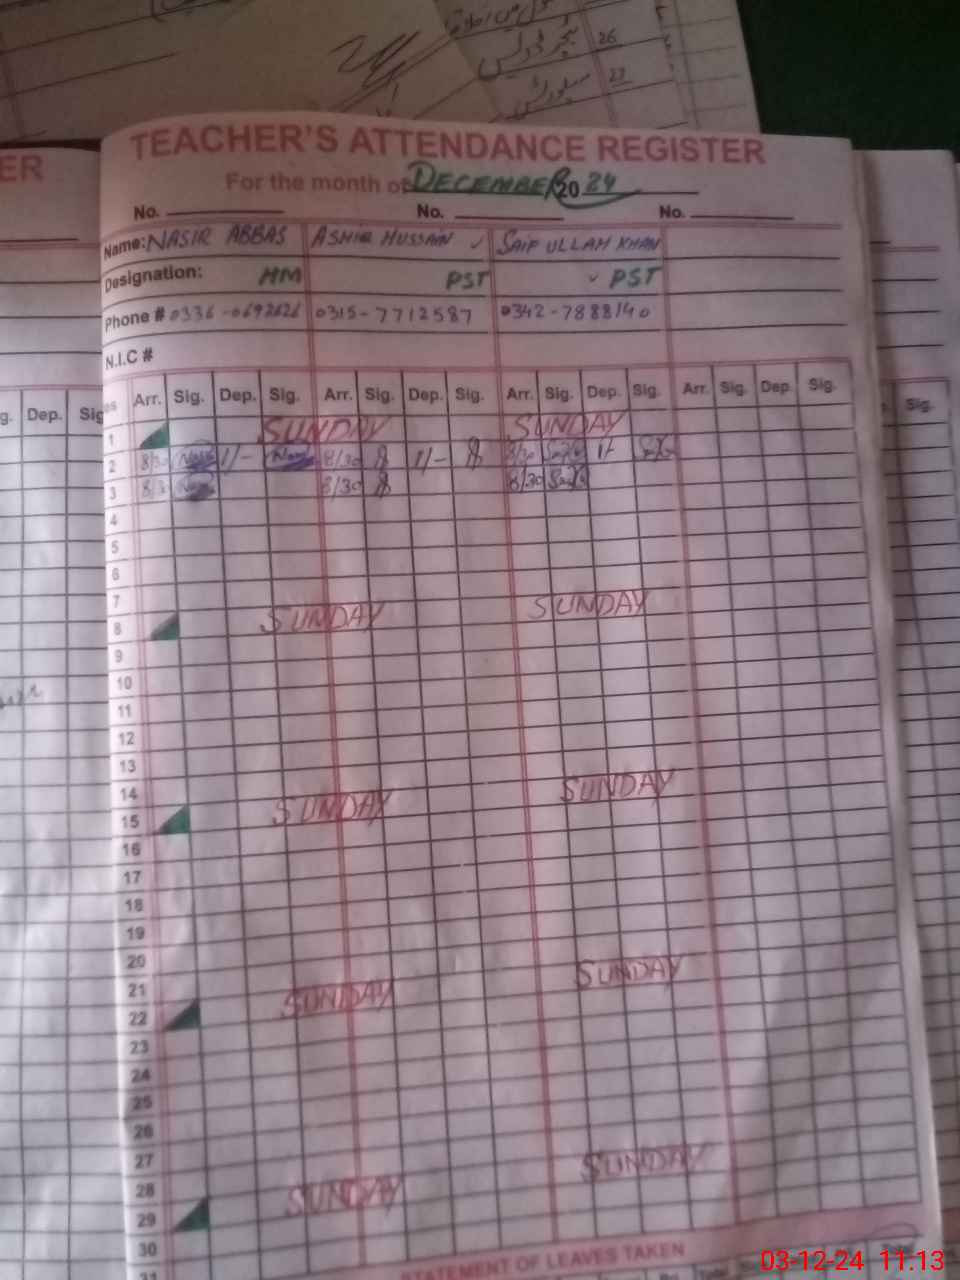 26
27
ER
TEACHER'S ATTENDANCE REGISTER
For the month of DECEMBER 2024
No. No. No.
Name: NASIR ABBAS ASHIQ HUSSAIN ✓ SAIF ULLAH KHAN
Designation: HM PST ✓ PST
Phone # 0336-0692626 0315-7712587 0342-7888140
N.I.C #
g. Dep. Sig
Arr. Sig. Dep. Sig. Arr. Sig. Dep. Sig. Arr. Sig. Dep. Sig. Arr. Sig. Dep. Sig. Sig.
1 SUNDAY SUNDAY
2 8/30 1/- 8/30 1/- 8/30 1/-
3 8/30 8/30 8/30
4
5
6
7
8 SUNDAY SUNDAY
9
10
11
12
13
14
15 SUNDAY SUNDAY
16
17
18
19
20
21
22 SUNDAY SUNDAY
23
24
25
26
27
28
29 SUNDAY SUNDAY
30
31
STATEMENT OF LEAVES TAKEN
03-12-24 11:13